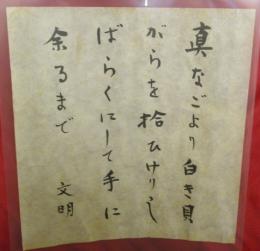 真なごより白き貝
がらを拾ひけりし
ばらくにして手に
余るまで
文明